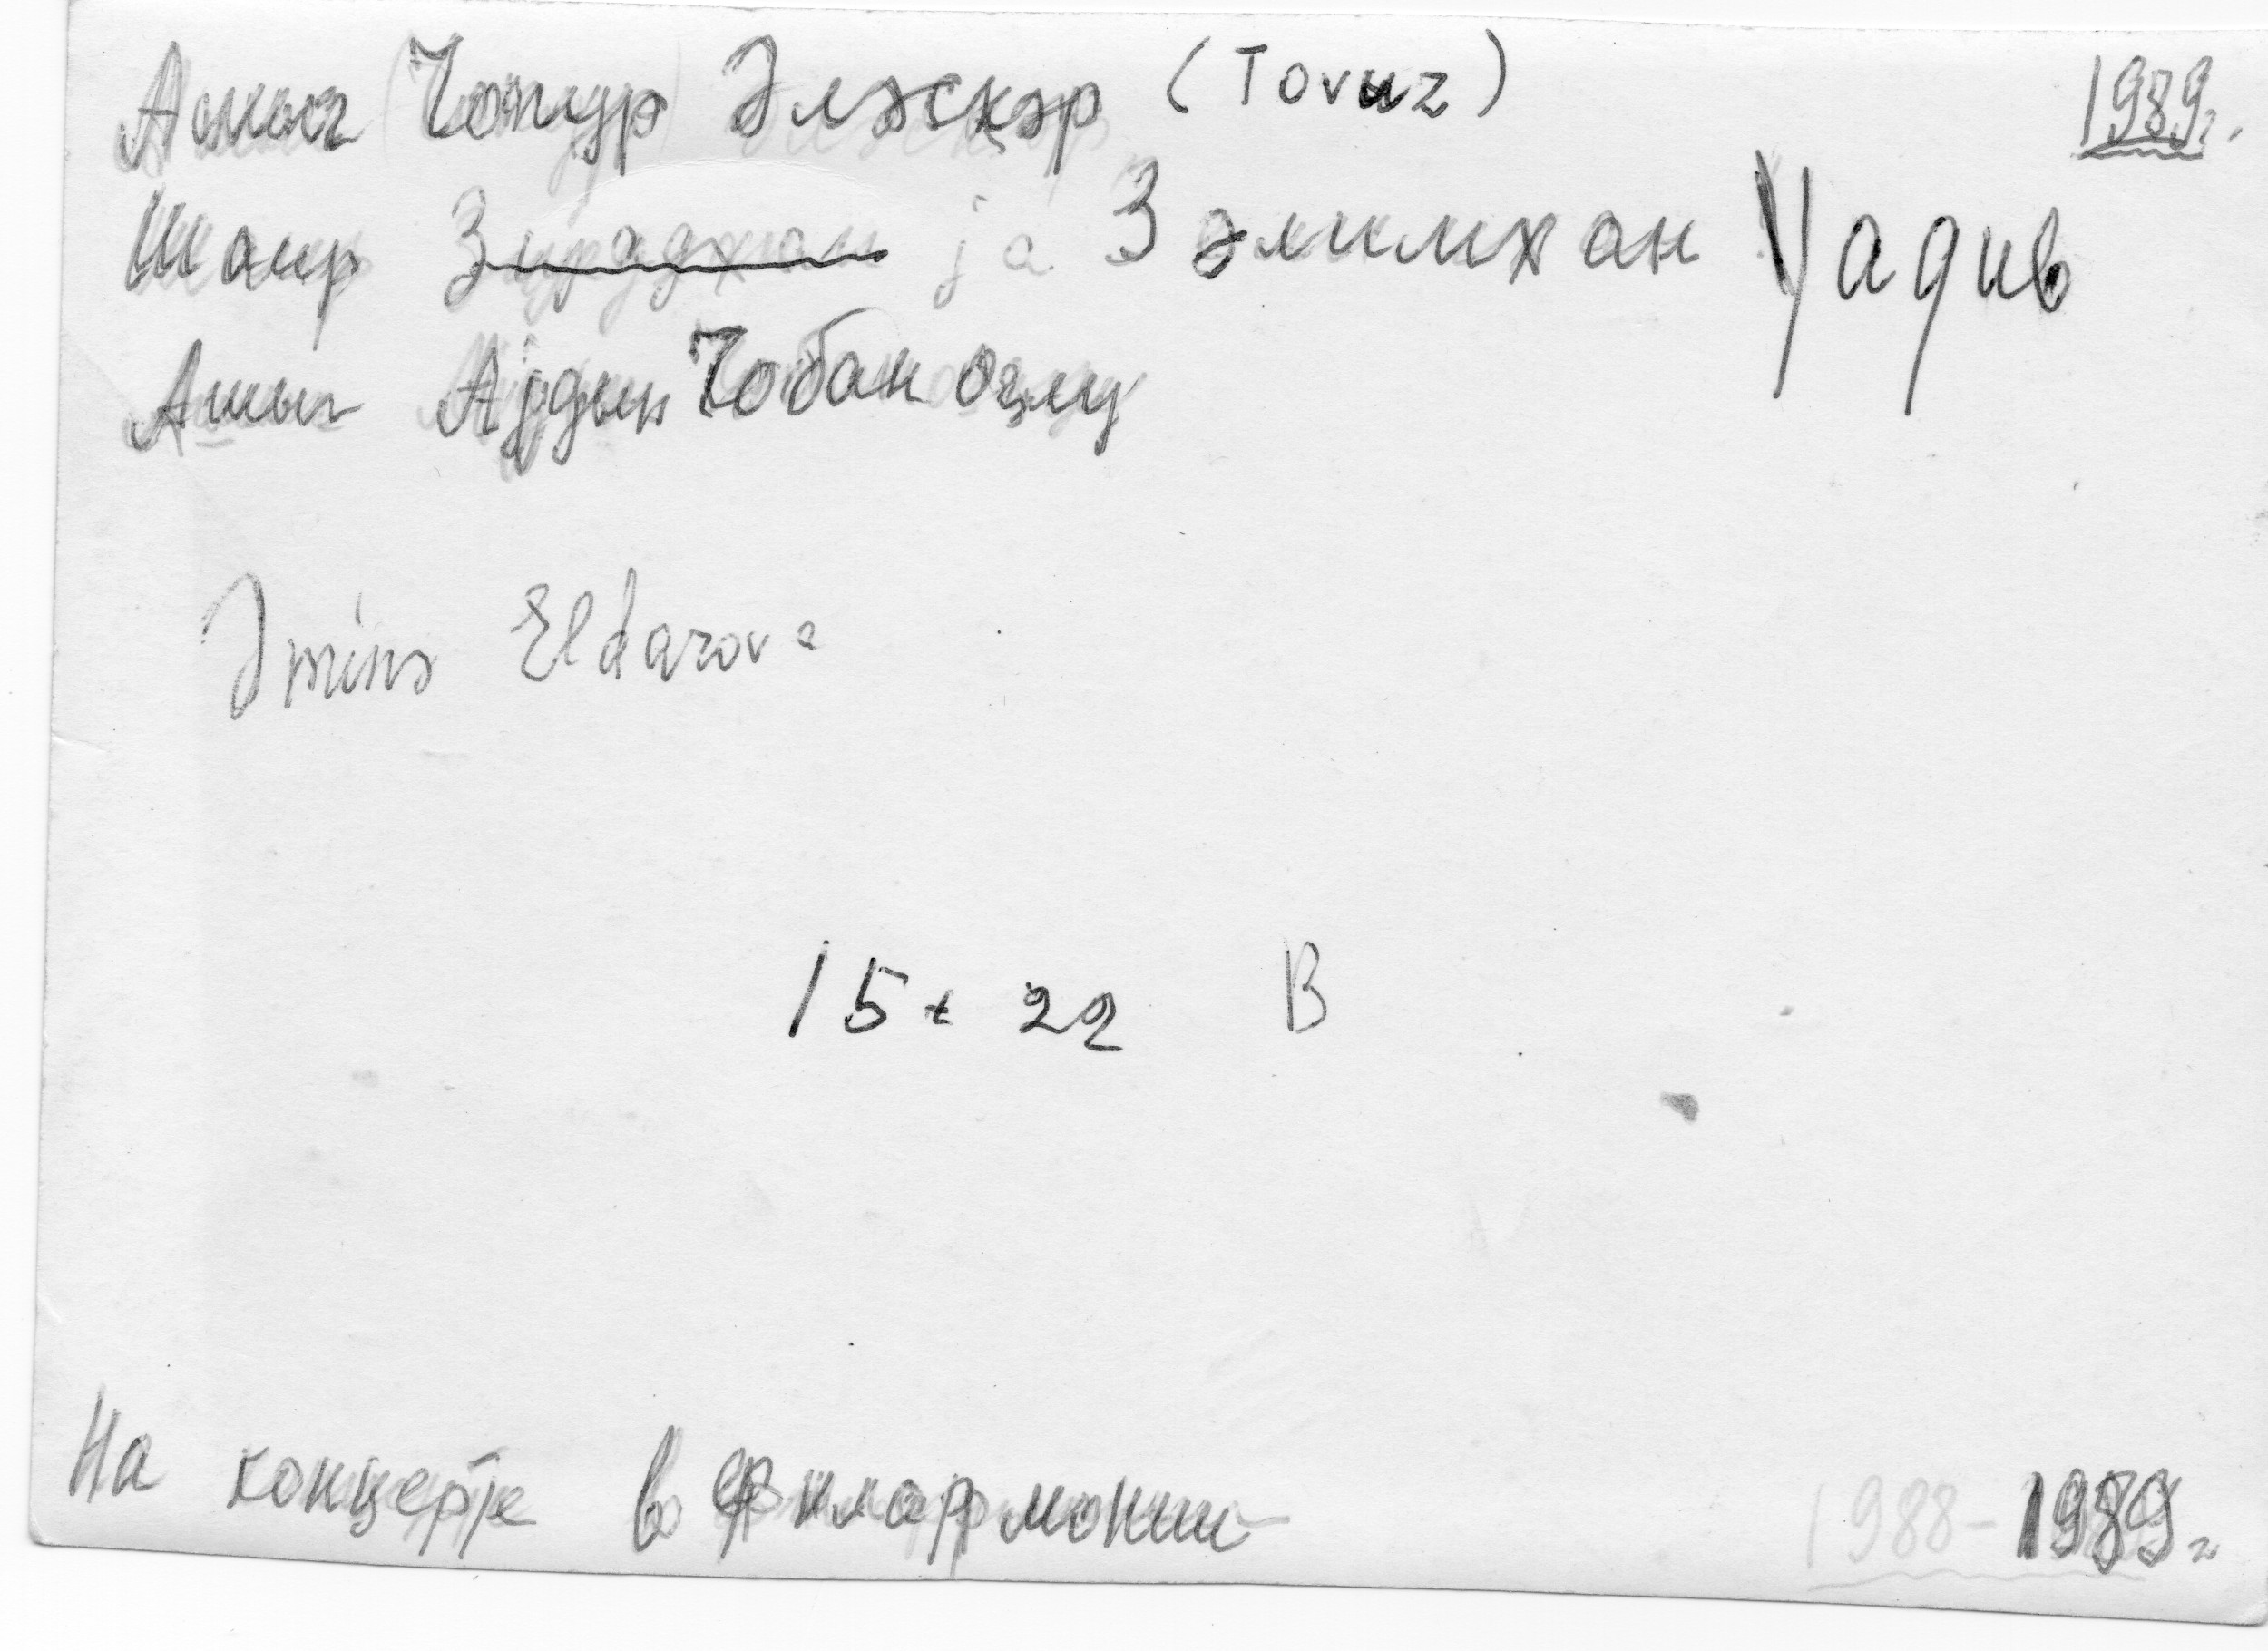 Ашыг Чопур Әләскәр (Tovuz) 1989г.
Шаир ја Зәлимхан Уадив
Ашыг Ајдын Чобаноғлу
Əminə Eldarova
15 x 22 B
На концерте в филармонии 1988-1989г.